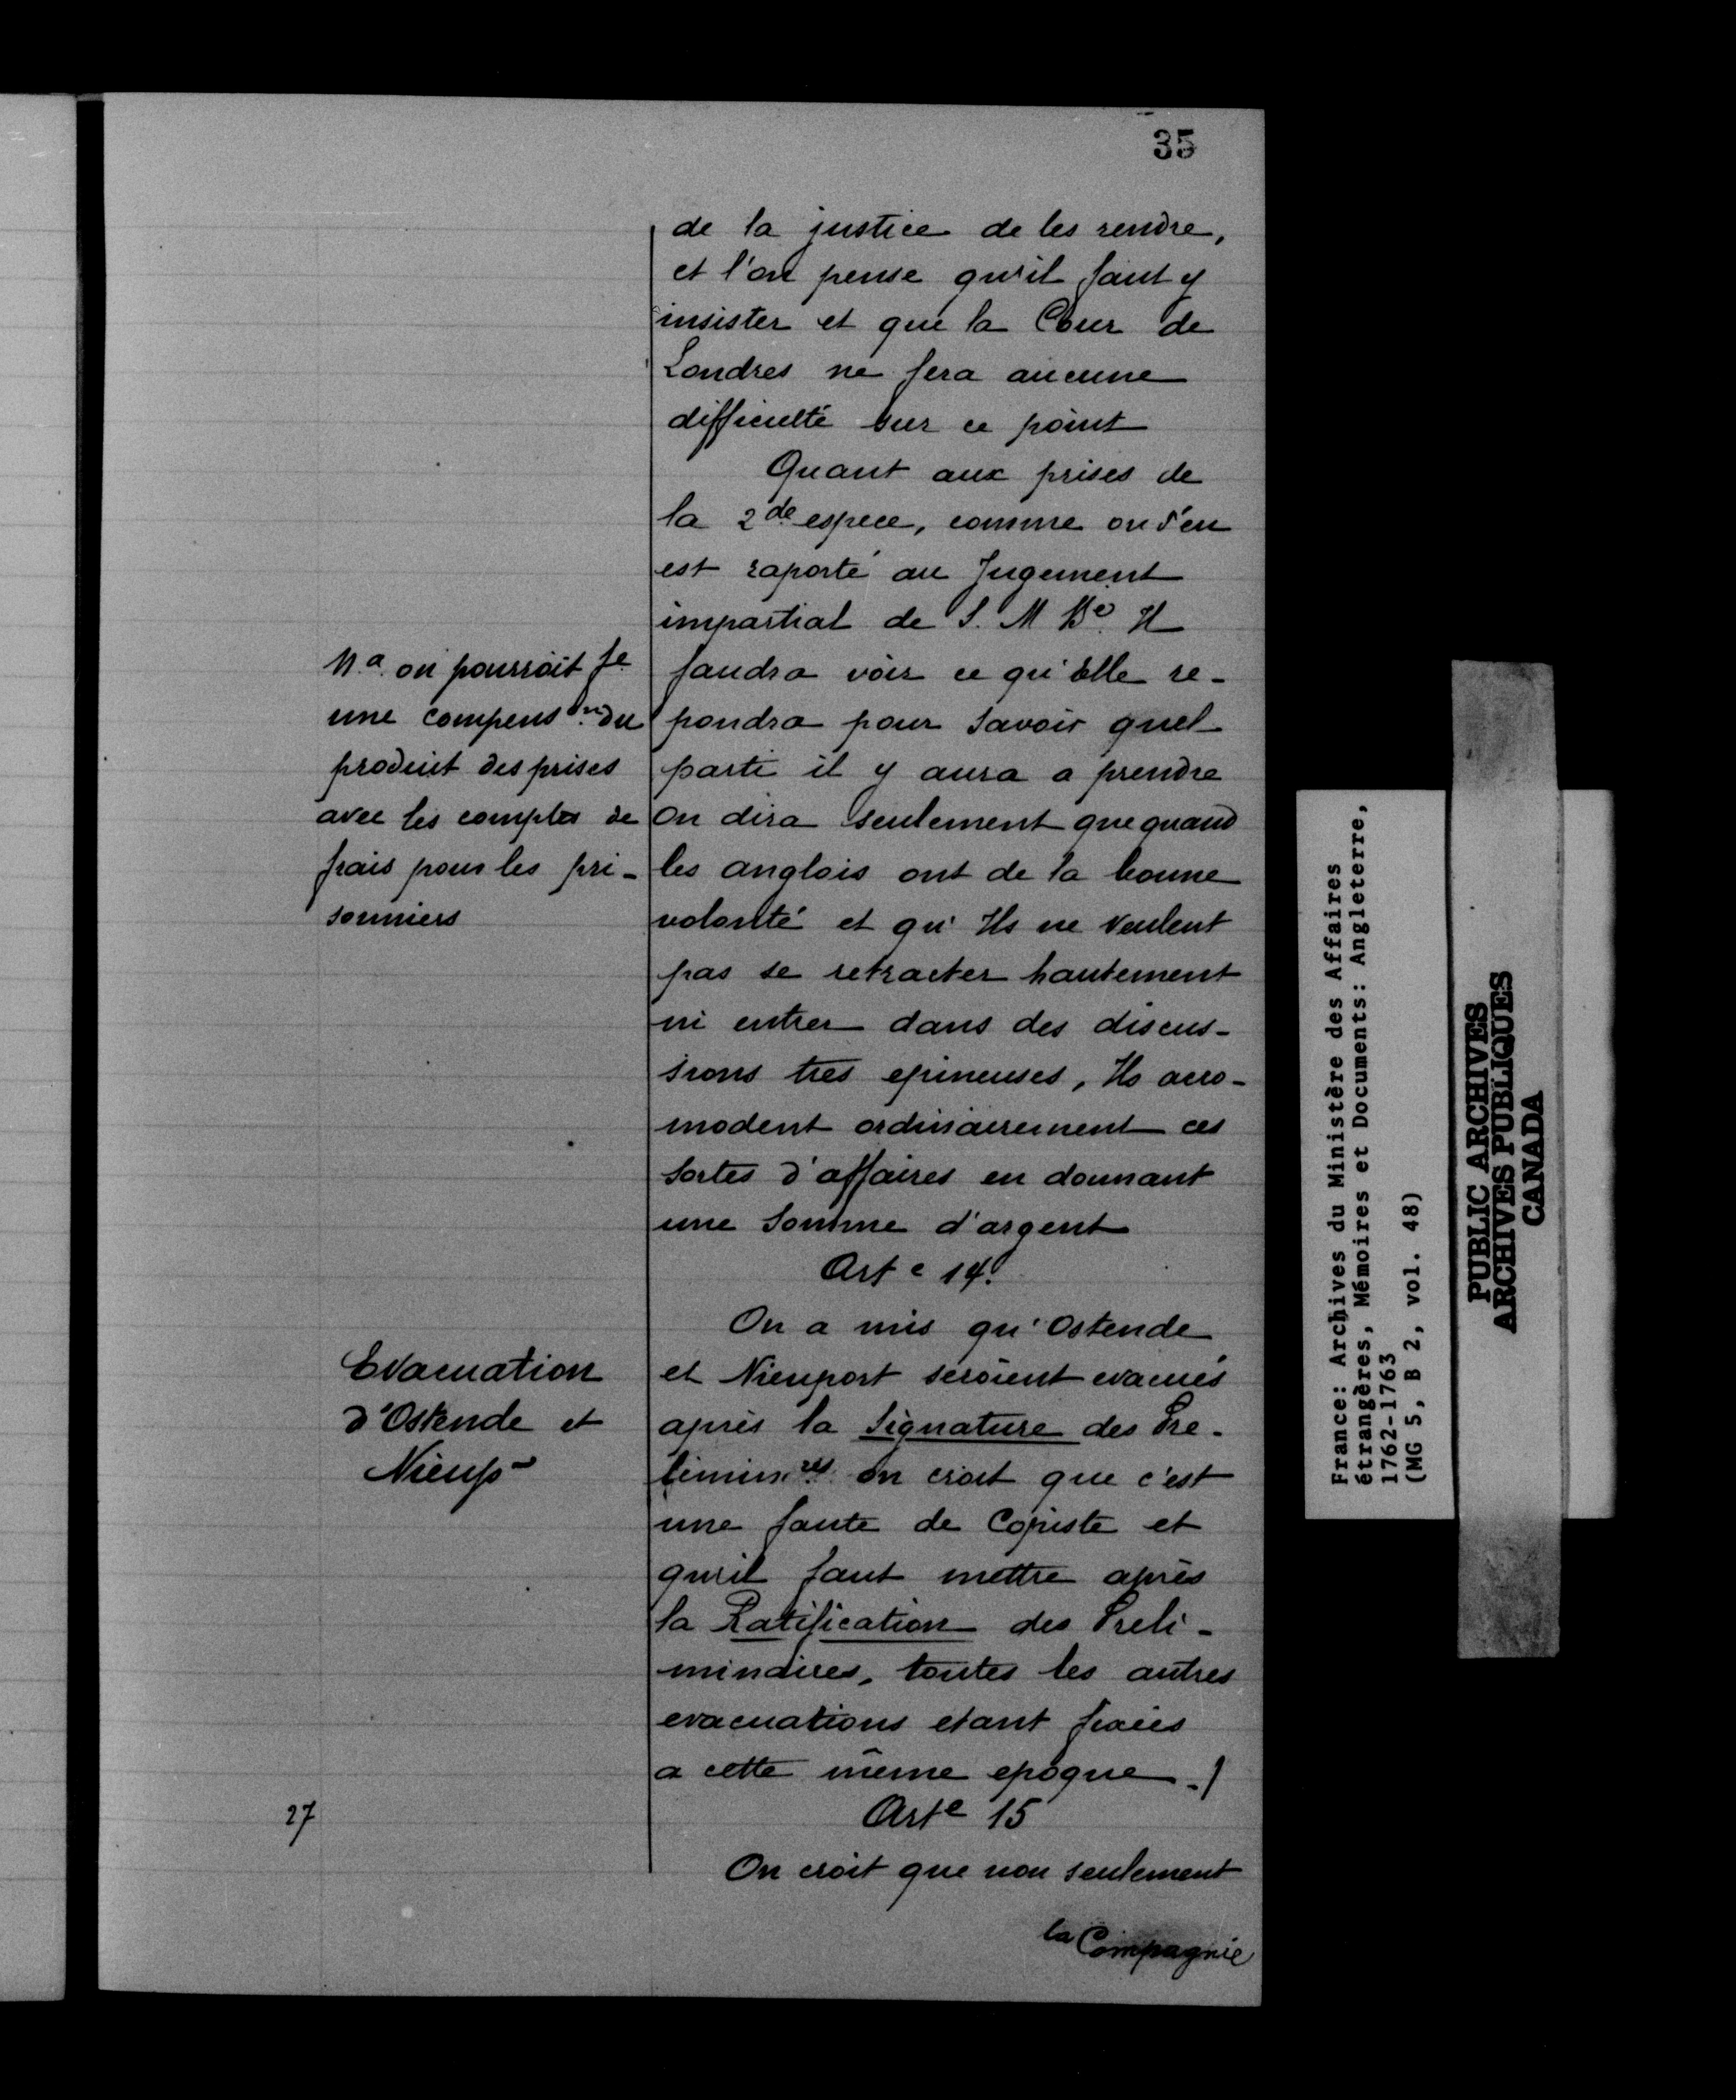 35
de la justice de les rendre,
et l'on pense qu'il faut y
insister et que la Cour de
Londres ne fera aucune
difficulté sur ce point
Quant aux prises de
la 2de espece, comme on s'en
est raporté au Jugement
impartial de S. M Be. Il
faudra voir ce qu'Elle re-
pondra pour savoir quel
parti il y aura a prendre
on dira seulement que quand
les anglois ont de la bonne
volonté et qu'Ils ne veulent
pas se retracter hautement
ni entrer dans des discus-
sions tres epineuses, Ils acco-
modent ordinairement ces
sortes d'affaires en donnant
une somme d'argent
Na. on pourroit fe
une compenson. du
produit des prises
avec les comptes de
frais pour les pri-
sonniers
Arte 14.
On a mis qu'Ostende
et Nieuport seroient evacués
après la Signature des Pre-
liminres on croit que c'est
une faute de Copiste et
qu'il faut mettre après
la Ratification des Preli-
minaires, toutes les autres
evacuations etant fixées
a cette même epoque -/
Evacuation
d'Ostende et
Nieup-
27
Arte 15
On croit que non seulement
la Compagnie
France: Archives du Ministère des Affaires
étrangères, Mémoires et Documents: Angleterre,
1762-1763
(MG 5, B 2, vol. 48)
PUBLIC ARCHIVES
ARCHIVES PUBLIQUES
CANADA